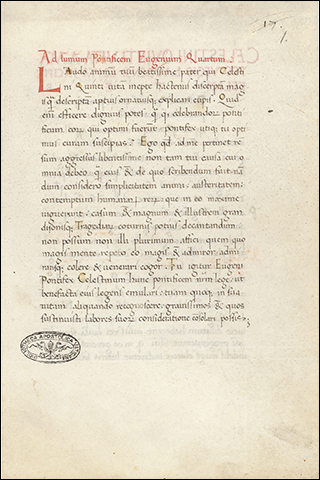 Ad sumum Pontificem Eugenium Quartum
Laudo animū tuū beatissime pater qui Celesti
ni Quinti vita inepte hactenus discerpta mag
descripta aptius ornatiusq; explicari cupis. Quid
enim efficere dignius potes q̄ q; celebrandoꝝ ponti
ficum eoꝝ qui optimi fuerūt pontifex utiq; tu opti
mus curam suscipias. Ego qd ad me pertinet
rem aggressus libentissime non tam tui causa cui o
mnia debeo q̄ eius & de quo scribendum sū
dum considero simplicitatem animi austeritatem
contemptum humanaꝝ reꝝ que in eo maxime
viguerunt casum & magnum & illustrem
Tragediaꝝ coturnis potius decantandum
non possum non illi plurimum affici quem quo
magis mente repeto eo magis & admiror admi
ransq; colere & venerari cogor. Tu igitur Eugeni
Pontifex Celestinum hunc pontificem ūrm lege: ut
benefacta eius legens emulari tuam quoq; in sua
virtutem aliquando recognoscere gravissimos & quos
sustinuisti labores suoꝝ consideratione cōsolari possis